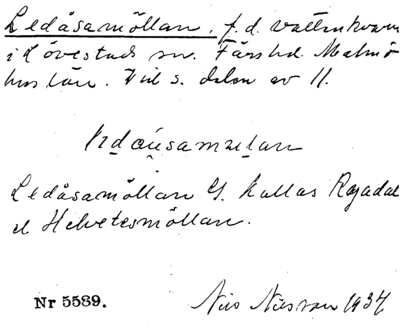 Ledåsamöllan, f.d. vattenkvarn
i Lövestads sn. Färs hd. Malmö
hus län. Vid s. delen av 11.
Ledåsamöllan el. kallas Rajadal
el Helvetesmöllan.
Nr 5589.
Nils Nilsson 1934